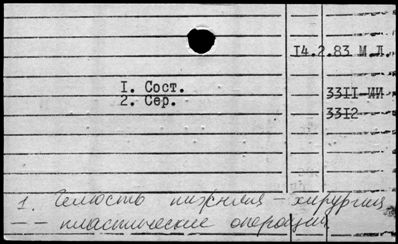 14.2.83 М.Л.
1. Сост.
3311-МИ
2. Сер.
3312
1. Челюсть нижняя - хирургия
-- пластические операции